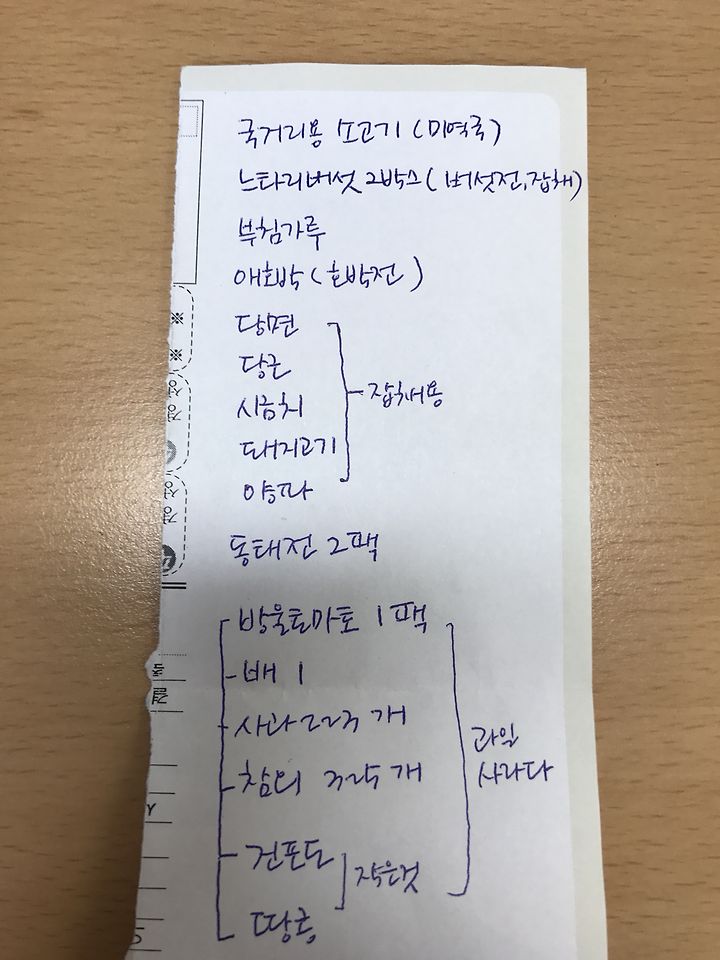 국거리용 소고기 (미역국)
느타리버섯 2박스 (버섯전, 잡채)
부침가루
애호박 (호박전)
당면
당근
시금치
돼지고기
양파
잡채용
동태전 2팩
방울토마토 1팩
배 1
사과 2개
참외 개
건포도
땅콩
작은것
과일
사라다
※
※
정성
정성